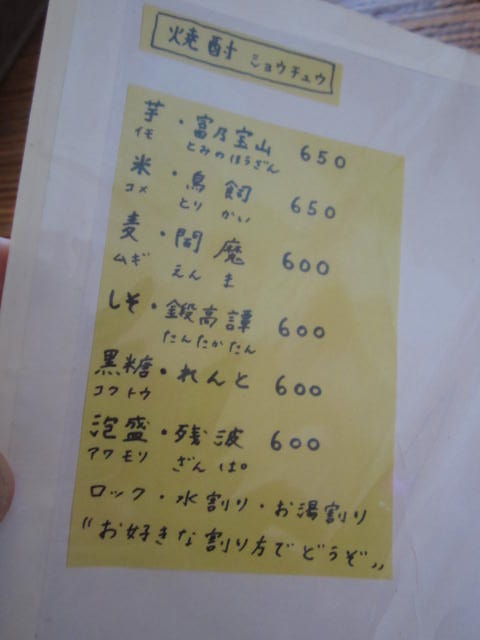 焼酎 ショウチュウ
芋・富乃宝山 650
イモ とみのほうざん
米・鳥飼 650
コメ とり かい
麦・閻魔 600
ムギ えん ま
しそ・鍛高譚 600
たんたかたん
黒糖・れんと 600
コクトウ
泡盛・残波 600
アワモリ ざん ぱ
ロック・水割り・お湯割り
〝お好きな割り方でどうぞ〟